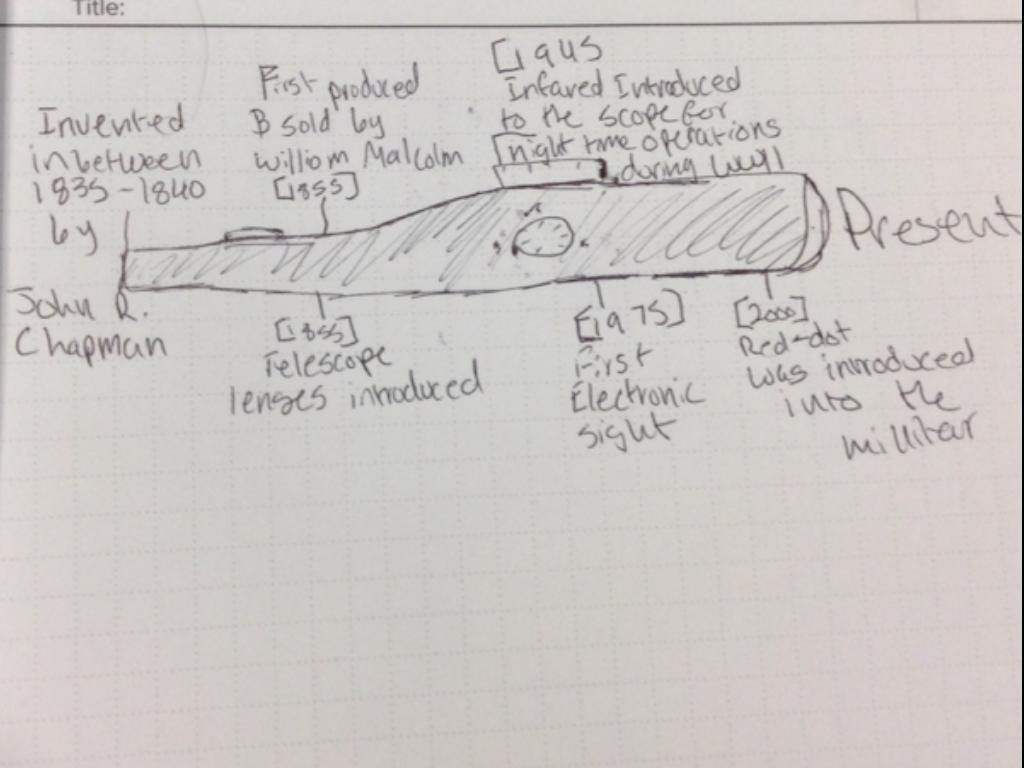 Title:
Invented
inbetween
1835-1840
by
John R.
Chapman
First produced
B sold by
William Malcolm
[1855]
[1945
Infared Introduced
to the scope for
night time operations
during WWII
Present
[1855]
Telescope
lenses introduced
[1975]
First
Electronic
sight
[2000]
Red-dot
was introduced
into the
millitar